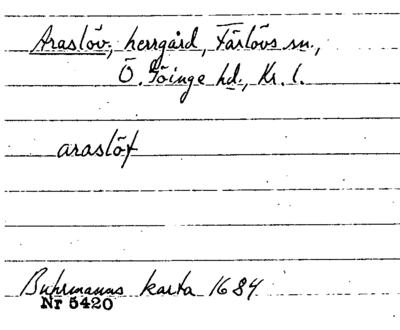 Araslöv, herrgård, Färlövs sn.,
Ö. Göinge hd., Kr. l.
araslöf
Buhrmanns karta 1684
Nr 5420